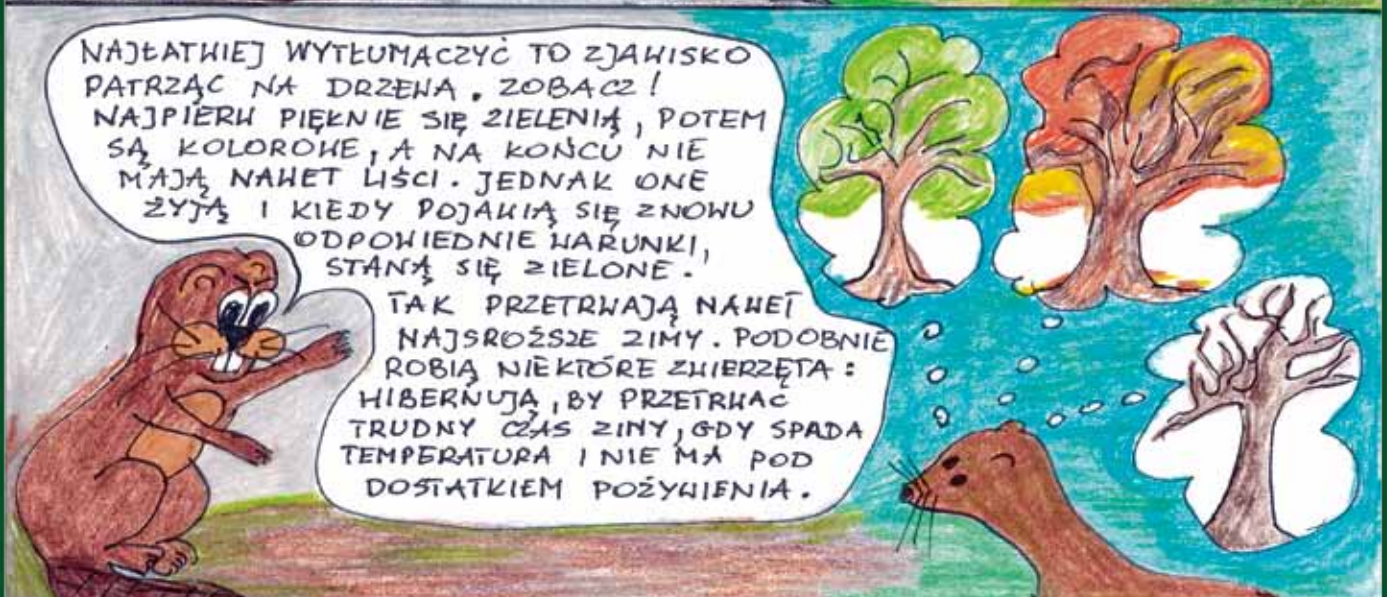 NAJŁATWIEJ WYTŁUMACZYĆ TO ZJAWISKO
PATRZĄC NA DRZEWA. ZOBACZ!
NAJPIERW PIĘKNIE SIĘ ZIELENIĄ, POTEM
SĄ KOLOROWE, A NA KOŃCU NIE
MAJĄ NAWET LIŚCI. JEDNAK ONE
ŻYJĄ I KIEDY POJAWIĄ SIĘ ZNOWU
ODPOWIEDNIE WARUNKI,
STANĄ SIĘ ZIELONE.
TAK PRZETRWAJĄ NAWET
NAJSROŻSZE ZIMY. PODOBNIE
ROBIĄ NIEKTÓRE ZWIERZĘTA:
HIBERNUJĄ, BY PRZETRWAĆ
TRUDNY CZAS ZIMY, GDY SPADA
TEMPERATURA I NIE MA POD
DOSTATKIEM POŻYWIENIA.